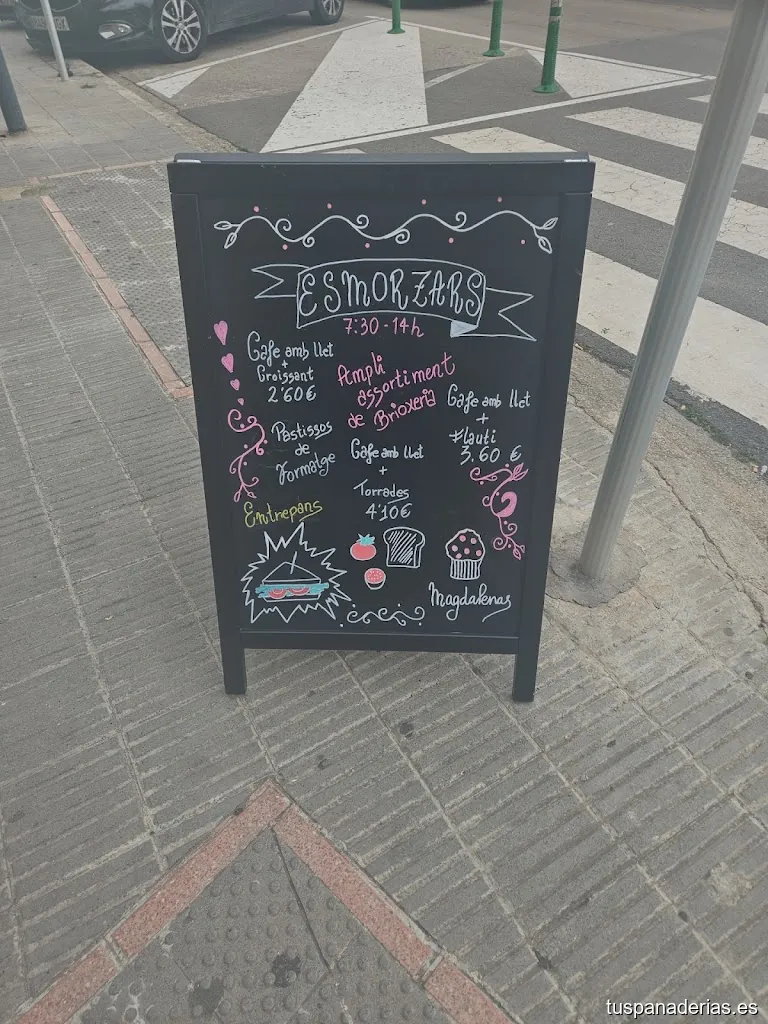 ESMORZARS
7:30-14h
Cafe amb llet
+
Croissant
2'60€
Ampli
assortiment
de Brioxeria
Cafe amb llet
+
Flauti
3.60 €
Pastissos
de
Formatge
Cafe amb llet
+
Torrades
4'10€
Entrepans
Magdalenas
tuspanaderias.es